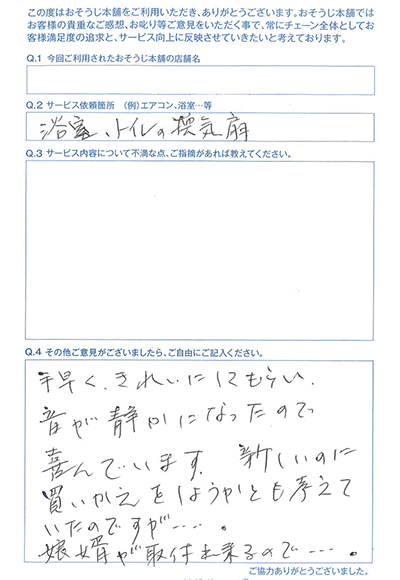 この度はおそうじ本舗をご利用いただき、ありがとうございます。おそうじ本舗では
お客様の貴重なご感想、お叱り等ご意見をいただく事で、常にチェーン全体としてお
客様満足度の追求と、サービス向上に反映させていきたいと考えております。
Q.1 今回ご利用されたおそうじ本舗の店舗名
Q.2 サービス依頼箇所 (例)エアコン、浴室…等
浴室、トイレの換気扇
Q.3 サービス内容について不満な点、ご指摘があれば教えてください。
Q.4 その他ご意見がございましたら、ご自由にご記入ください。
手早く、きれいにしてもらい、
音が静かになったので
喜んでいます。新しいのに
買いかえをしようかとも考えて
いたのですが……。
娘婿が取付出来るので……。
ご協力ありがとうございました。